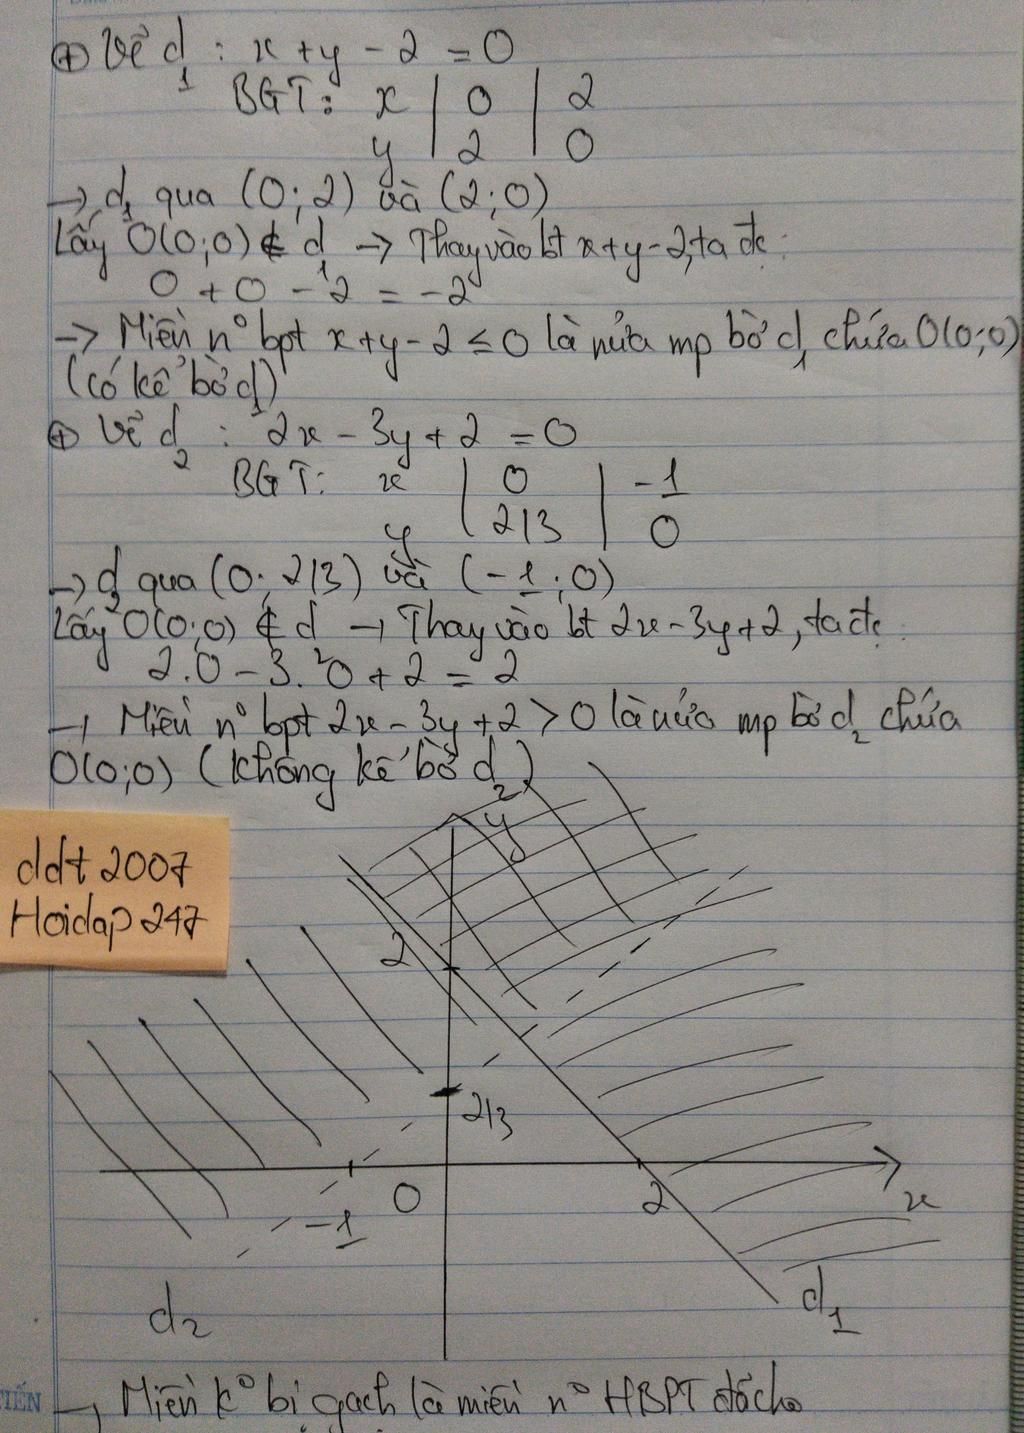 ⊕ Vẽ d₁ : x + y - 2 = 0
BGT: x | 0 | 2
y | 2 | 0
→ d₁ qua (0; 2) và (2; 0)
Lấy O(0;0) ∉ d₁ → Thay vào bt x+y-2, ta đc:
0 + 0 - 2 = -2
→ Miền n° bpt x+y-2 ≤ 0 là nửa mp bờ d₁ chứa O(0;0)
(có kể bờ d₁)
⊕ Vẽ d₂ : 2x - 3y + 2 = 0
BGT: x | 0 | -1
y | 2/3 | 0
→ d₂ qua (0; 2/3) và (-1; 0)
Lấy O(0;0) ∉ d₂ → Thay vào bt 2x-3y+2, ta đc:
2.0 - 3.0 + 2 = 2
→ Miền n° bpt 2x-3y+2 > 0 là nửa mp bờ d₂ chứa
O(0;0) (không kể bờ d₂)
y
ddt 2007
Hoidap 247
2
2/3
0
2
x
-1
d₁
d₂
TIẾN
→ Miền k° bị gạch là miền n° HBPT đã cho